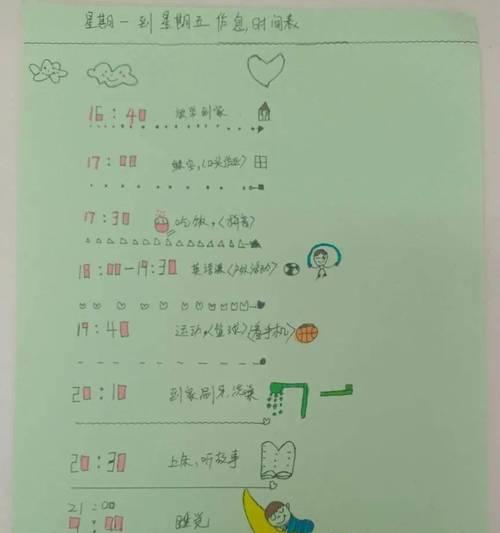 星期一到星期五作息,时间表
16:40 放学到家
17:00 练字,(口头作业)
17:30 吃饭,(抖音)
18:00-19:30 英语课(户外活动)
19:40 运动,(篮球)(看手机)
20:10 到家刷牙,洗澡
20:30 上床,听故事
21:00
睡觉